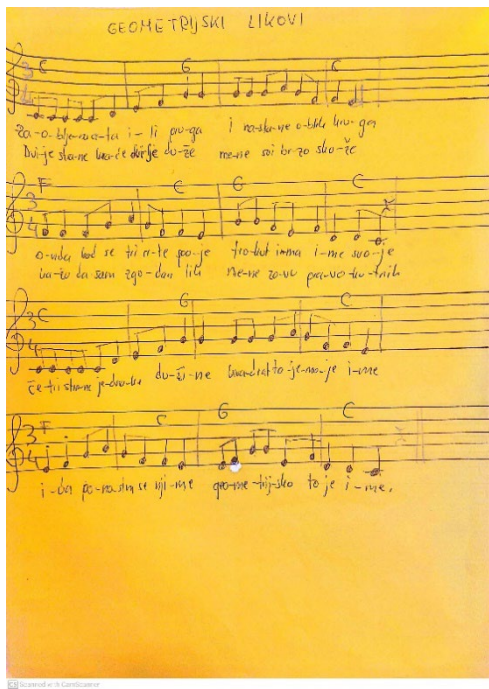 GEOMETRIJSKI LIKOVI
3 C G C
4
za-o-blje-na-ta i-li pru-ga i na-sta-ne o-blik kru-ga
Dvi-je stra-ne kra-će dvi-je du-že me-ne svi br-zo slo-že
3 F C G C
4
o-nda kad se tri cr-te spo-je trokut imma i-me svo-je
ka-žu da sam zgo-dan lik me-ne zovu pra-vo-ku-tnik
3 C G C
4
če-tri stra-ne je-dna-ke du-ži-ne kvadrat to-je-mo-je i-me
3 F C G C
4
i-da po-nosim se nji-me geo-me-trij-sko to je i-me.
CS Scanned with CamScanner